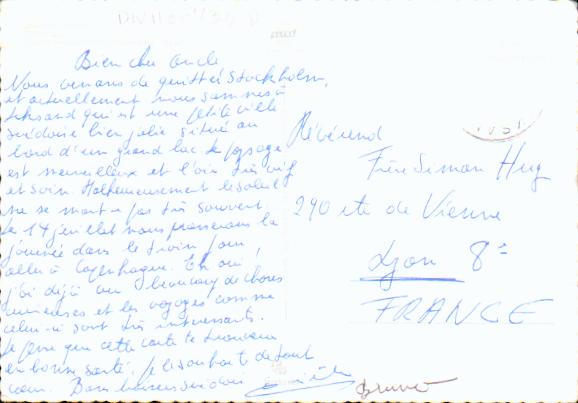 Bien cher Oncle
Nous venons de quitter Stockholm,
et actuellement nous sommes à
qui est une petite ville
suédoise bien jolie située au
bord d'un grand lac. Le paysage
est merveilleux et l'air très vif
et sain. Malheureusement le soleil
ne se montre pas très souvent.
Le 14 juillet nous passerons la
journée dans le train pour
aller à Copenhague. Eh oui,
j'ai déjà vu beaucoup de choses
curieuses et les voyages comme
celui-ci sont très intéressants.
Je pense que cette carte te trouvera
en bonne santé, je le souhaite de tout
cœur. Bons baisers suédois
Révérend
Frère Simon Hug
290 rte de Vienne
Lyon 8e
FRANCE